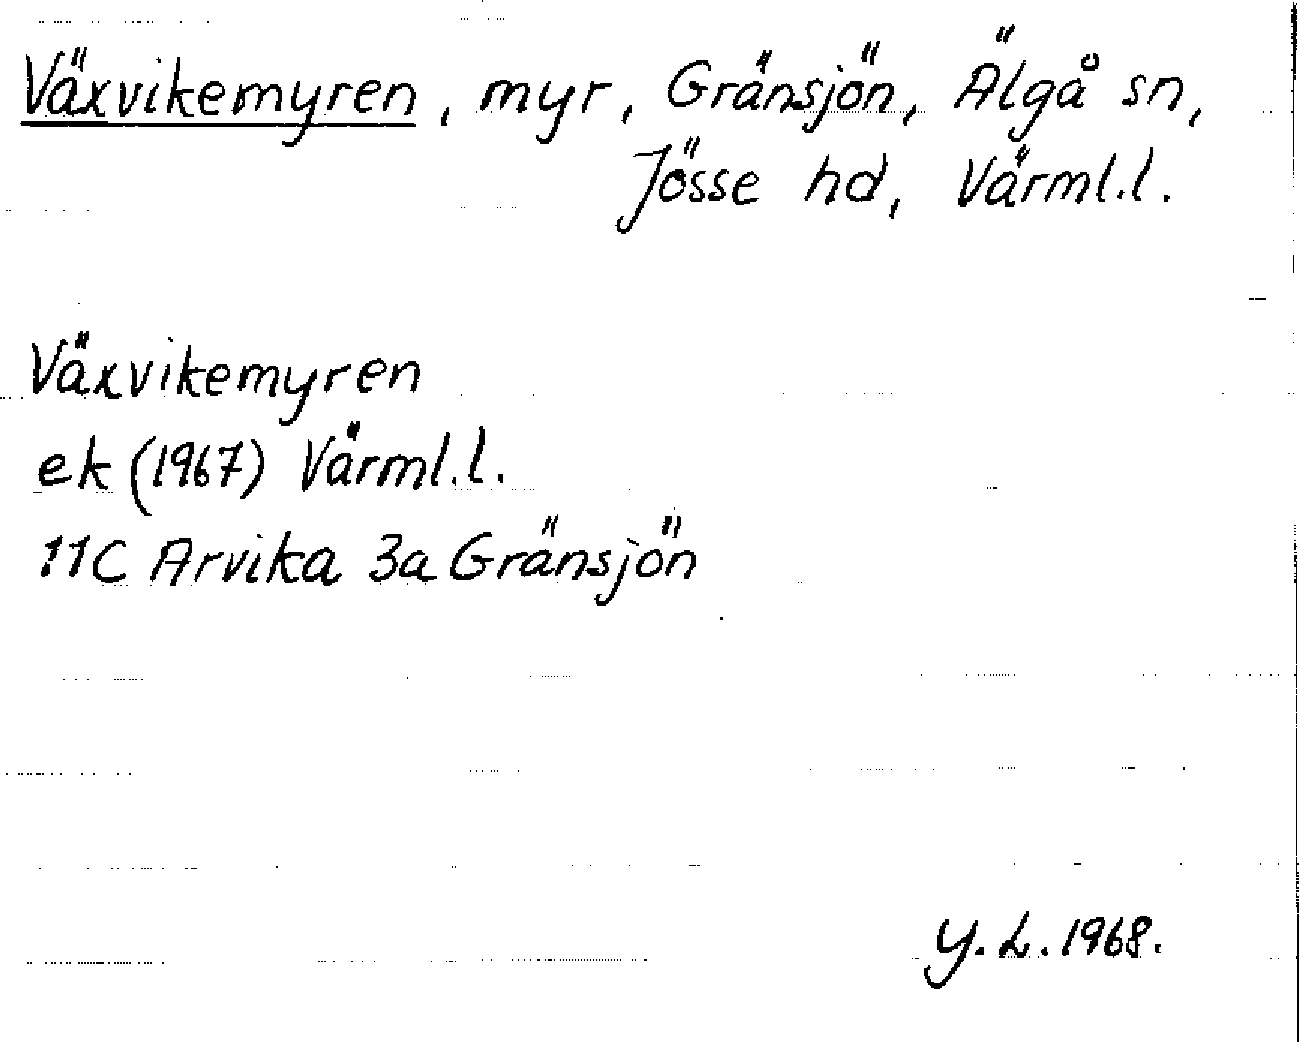 Växvikemyren, myr, Gränsjön, Älgå sn,
Jösse hd, Värml.l.
Växvikemyren
ek (1967) Värml.l.
11C Arvika 3a Gränsjön
Y.L. 1968.